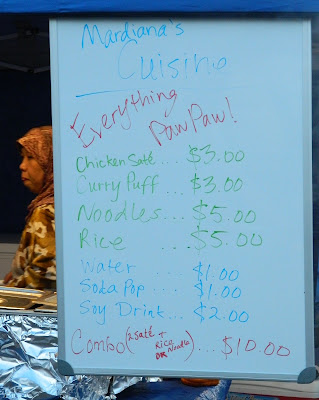 Mardiana's
Cuisine
Everything
PawPaw!
Chicken Saté ... $3.00
Curry Puff ... $3.00
Noodles... $5.00
Rice ... $5.00
Water ... $1.00
Soda Pop ... $1.00
Soy Drink... $2.00
Combo (2 Saté + Rice OR Noodle) ... $10.00